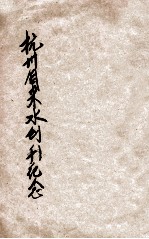 杭州自来水创刊纪念